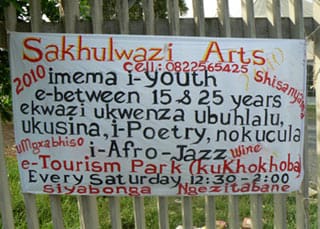 Sakhulwazi Arts
Cell: 0822565425
2010 imema i-youth Shisanyama
e-between 15 & 25 years
ekwazi ukwenza ubuhlalu,
ukusina, i-Poetry, nokucula
umgxabhiso i-Afro-Jazz wine
e-Tourism Park (kukhokhoba)
Every Saturday, 12:30-2:00
siyabonga Ngezitabane